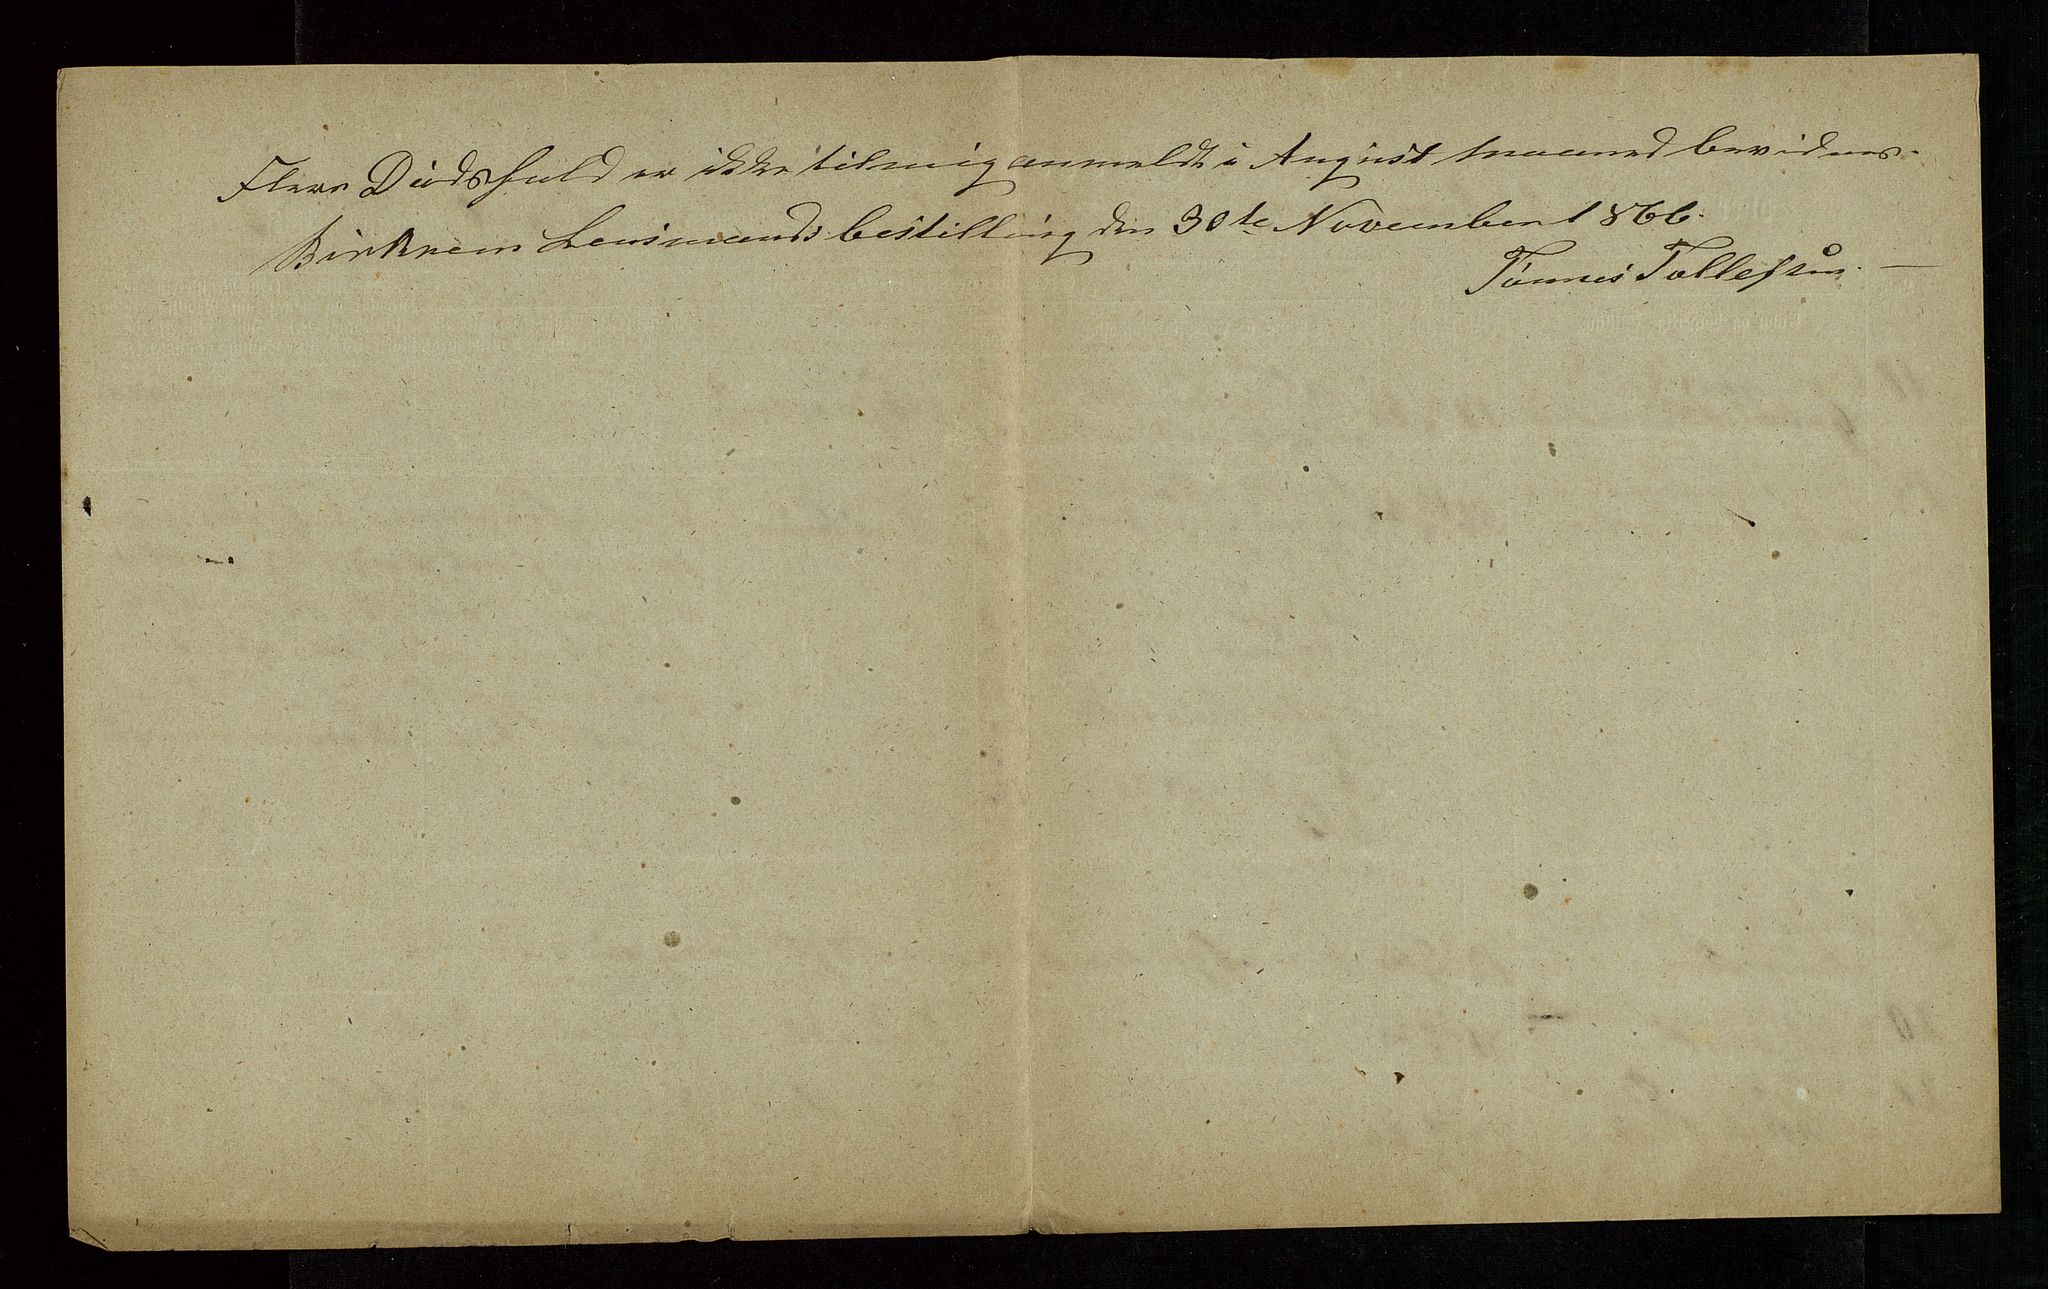 Flere Dødsfald er ikke til mig anmeldt i August Maaned bevidnes.
Birkrem Lensmandsbestilling den 30te November 1866.
Tønnes Tollefsen.